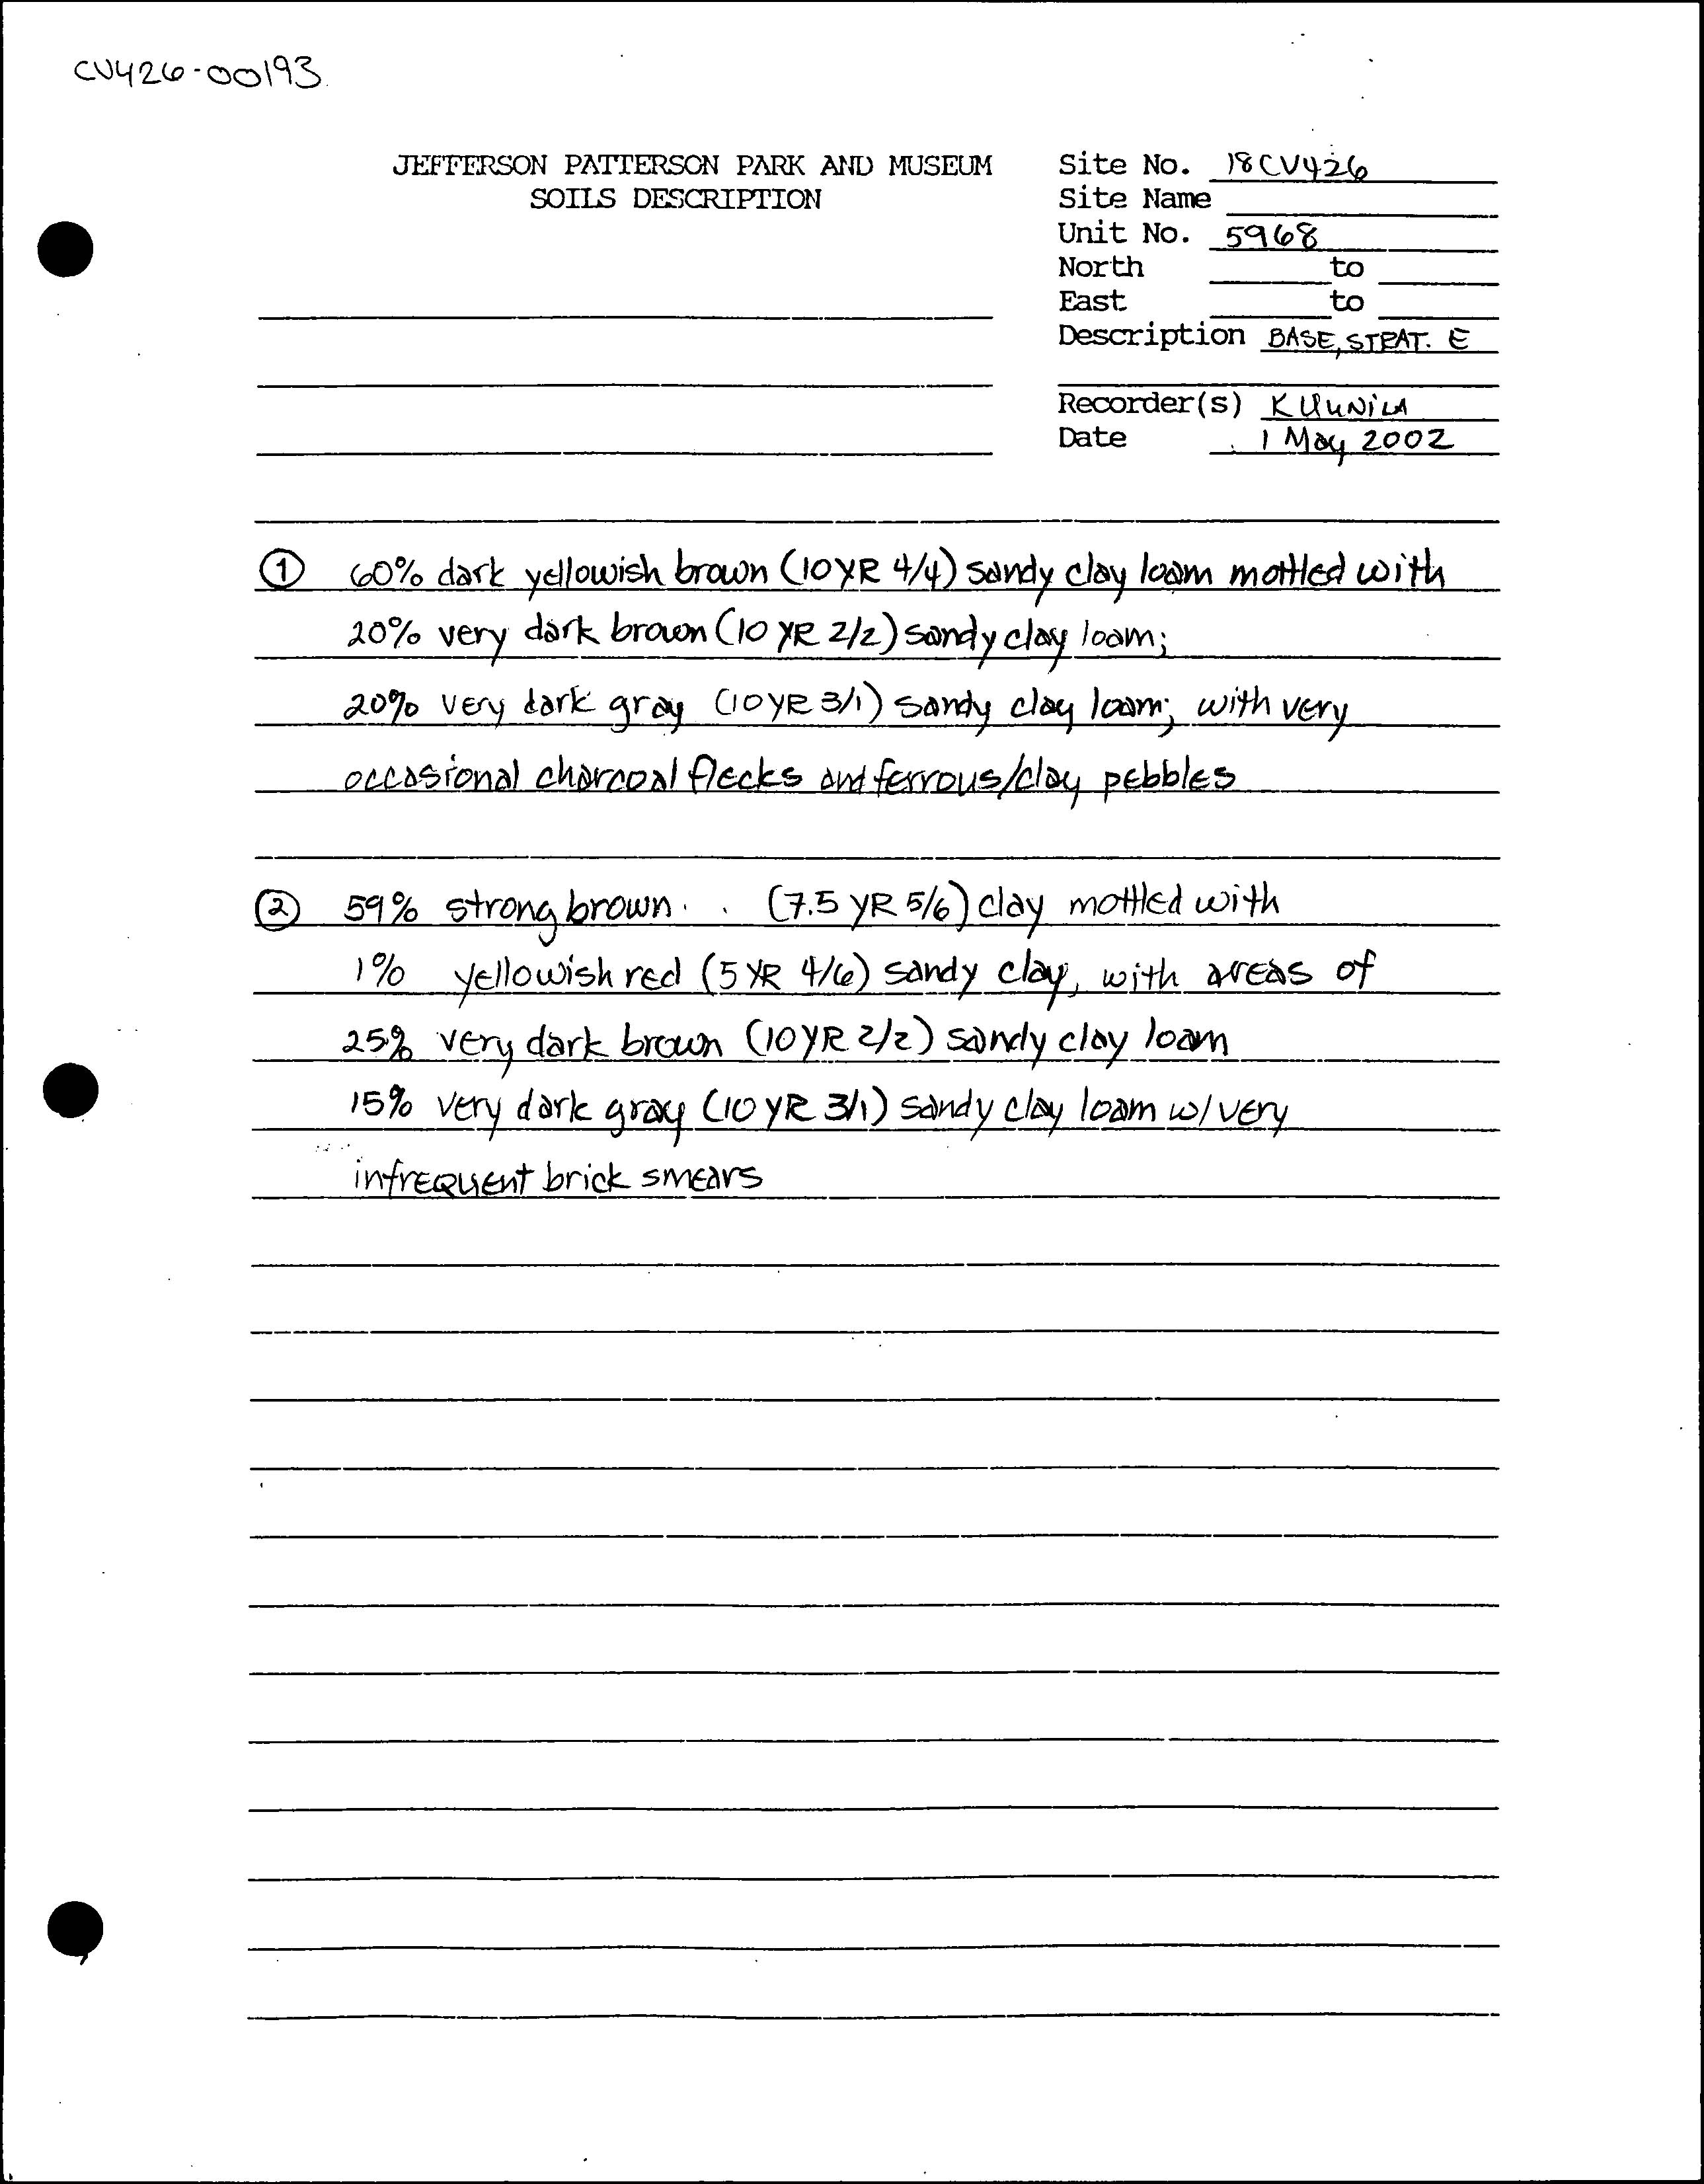 CV426-00193
JEFFERSON PATTERSON PARK AND MUSEUM
SOILS DESCRIPTION
Site No. 18CV426
Site Name
Unit No. 5968
North to
East to
Description BASE, STRAT. E
Recorder(s) K UUNILA
Date 1 May 2002
① 60% dark yellowish brown (10YR 4/4) sandy clay loam mottled with
20% very dark brown (10 YR 2/2) sandy clay loam;
20% very dark gray (10YR 3/1) sandy clay loam; with very
occasional charcoal flecks and ferrous/clay pebbles
② 59% strong brown (7.5 YR 5/6) clay mottled with
1% yellowish red (5 YR 4/6) sandy clay, with areas of
25% very dark brown (10YR 2/2) sandy clay loam
15% very dark gray (10 YR 3/1) sandy clay loam w/ very
infrequent brick smears